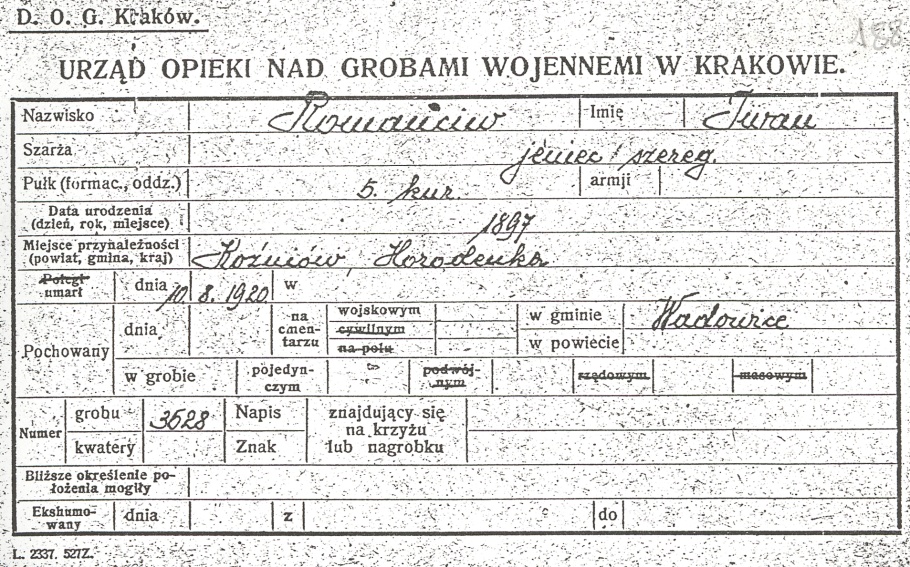 D. O. G. Kraków.
188
URZĄD OPIEKI NAD GROBAMI WOJENNEMI W KRAKOWIE.
Nazwisko Romańciw Imię Iwan
Szarża jeniec / szereg.
Pułk (formac., oddz.) 5. kur. armji
Data urodzenia (dzień, rok, miejsce) 1897
Miejsce przynależności (powiat, gmina, kraj) Koźniów, Horodenka
Poległ umarł dnia 10. 8. 1920 w
Pochowany dnia na cmentarzu wojskowym cywilnym na polu w gminie Wadowice w powiecie
w grobie pojedynczym podwójnym rządowym masowym
Numer grobu 3628 kwatery Napis Znak znajdujący się na krzyżu lub nagrobku
Bliższe określenie położenia mogiły
Ekshumowany dnia z do
L. 2337. 527Z.